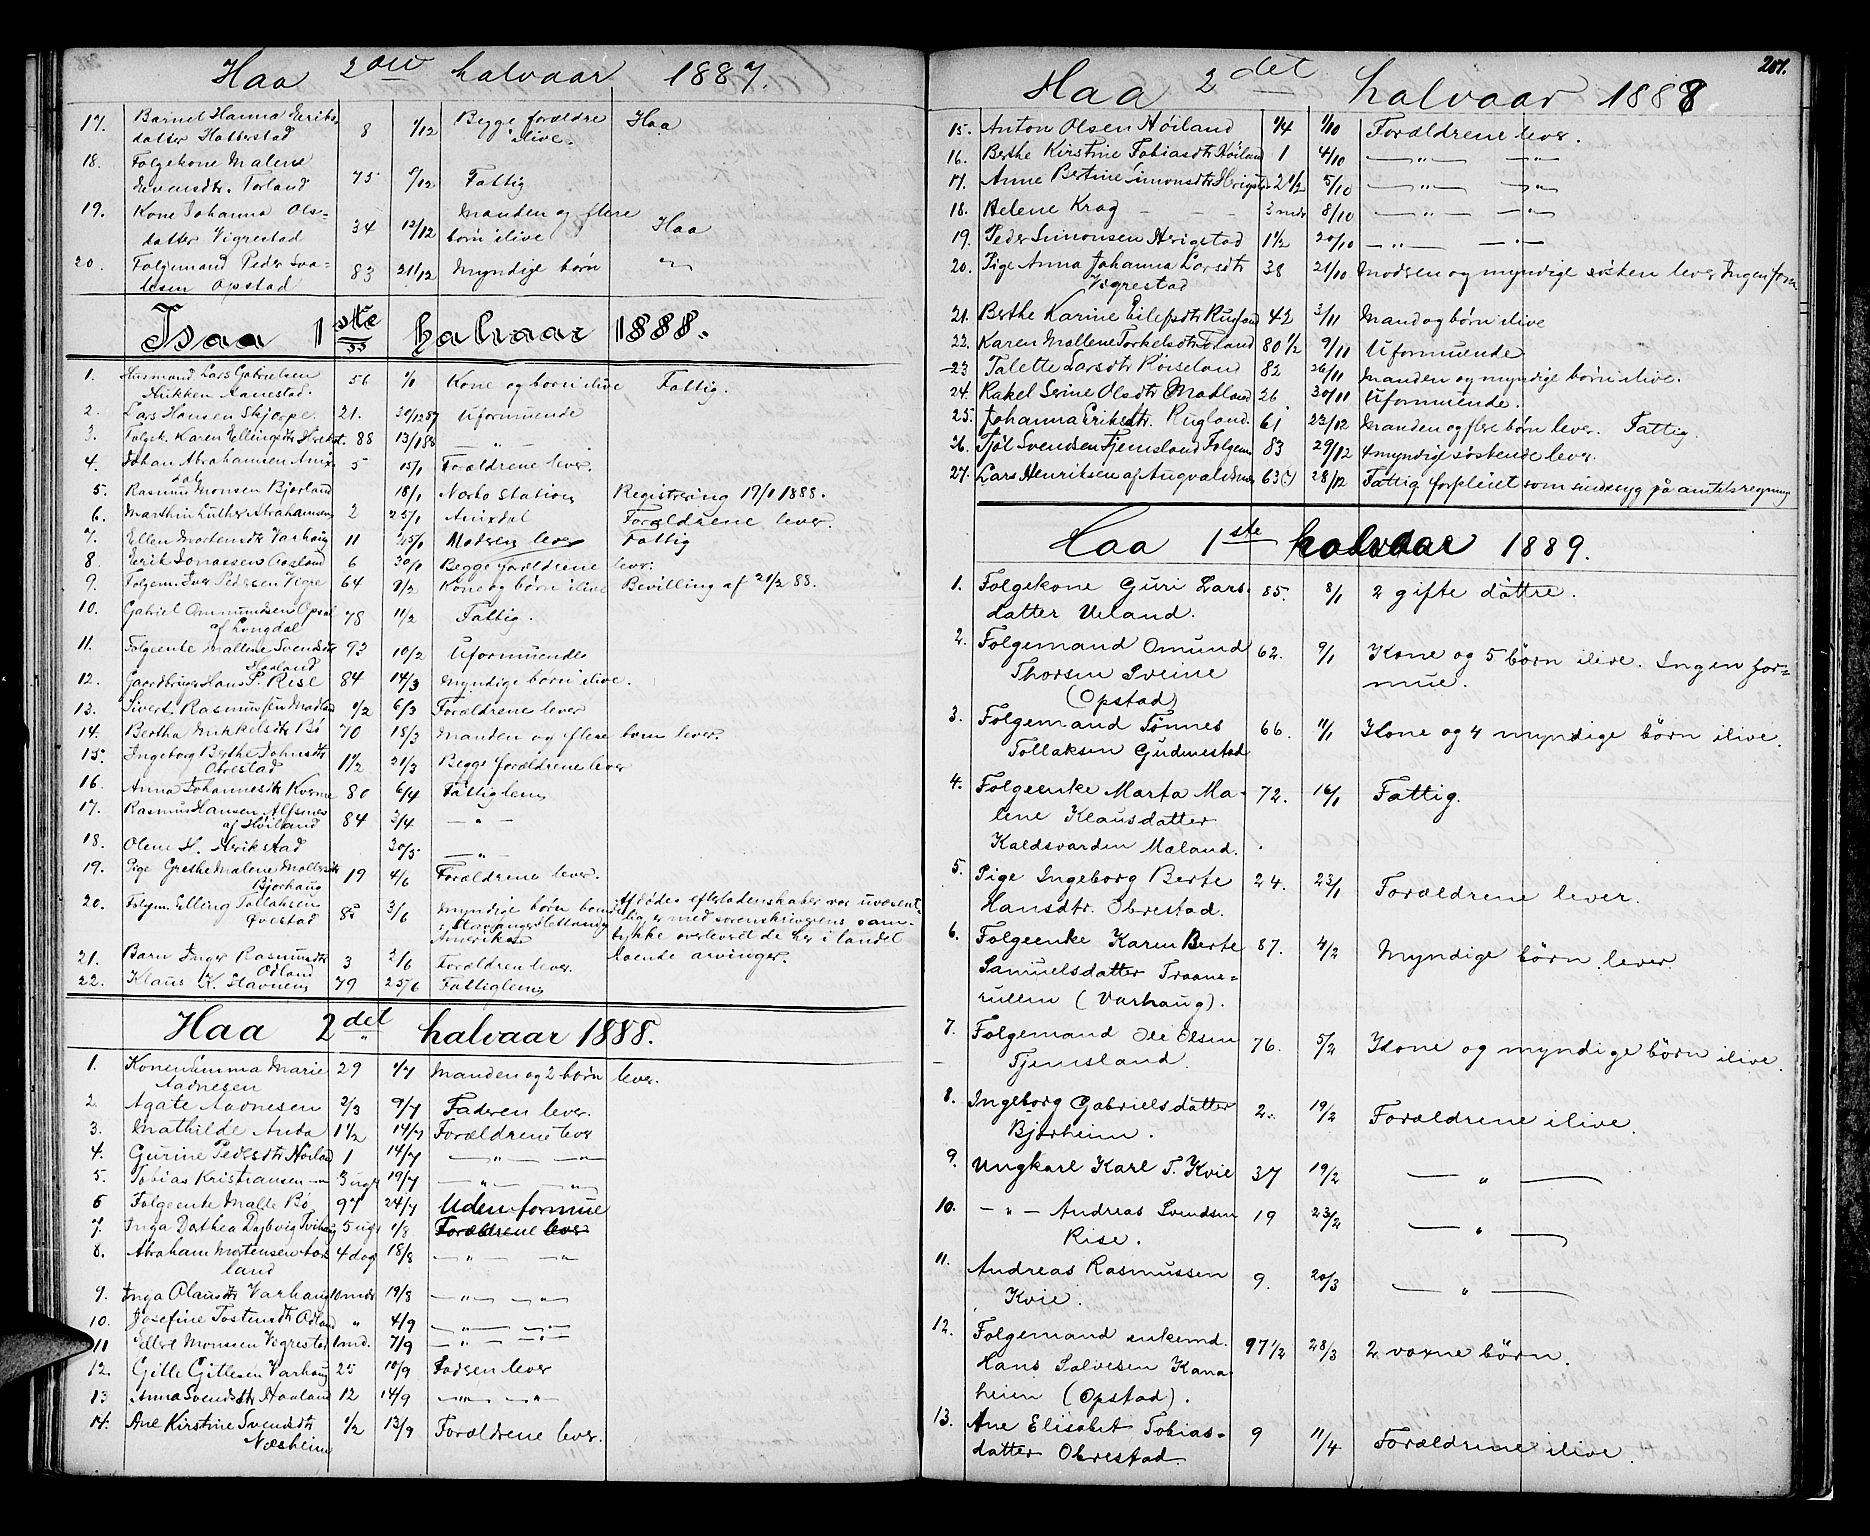 Haa 2det halvaar 1887.
17. Barnet Hanna Eriks-
datter Hatterstad 8 1/12 Begge forældre ilive. Haa
18. Folgekone Malene
Svensdtr. Torland 75 9/12 Fattig
19. Kone Johanna Ols-
datter Vigrestad 34 12/12 Manden og flere børn ilive Haa
20. Folgemand Peder Sva-
lesen Opstad 83 21/12 Myndige børn -"-
Haa 1ste halvaar 1888.
1. Husmand Lars Gabrielsen
Stikken Aanestad. 56 Kone og børn ilive Fattig.
2. Lars Hansen Skjærpe. 21. 30/12 87 Uformuende
3. Folgek. Karen Ellingsdtr 88 13/1 88 — " —
4. Johan Abrahamsen Anix-
dal 5 15/1 Forældrene lever.
5. Rasmus Monsen Bjorland 18/1 Nærbø Station Registrering 19/1 1888.
6. Marthin Luther Abrahamsen 2 25/1 Anixdal Forældrene lever.
7. Ellen Mortensdtr Varhaug 11 25/1 Moderen lever Fattig
8. Erik Jonassen Aasland 6 30/1 Begge forældrene lever.
9. Folgem. Iver Pedersen Vigre 64 9/2 Kone og børn ilive Bevilling af 21/2 88.
10. Gabriel Ommundsen Opsal
af Longdal 78 11/2 Fattig.
11. Folgeenke Mallene Svendsdtr
Haaland 93 10/2 Uformuende
12. Gaardbruger Hans P. Rise 84 14/3 Myndige børn ilive.
13. Sivert Rasmussen Madland 1/2 6/3 Forældrene lever
14. Bertha Mikkelsdtr Bø 70 18/3 Manden og flere børn lever.
15. Ingeborg Berthe Johnsdtr
Obrestad 1 1/2 21/3 Begge forældrene lever
16. Anna Johannesdtr Kverme 80 6/4 Fattiglem
17. Rasmus Hansen Alfsnes
af Høiland 84 3/4 — " —
18. Olene H. Herikstad 30/5 — " —
19. Pige Grethe Malene Mollersdtr
Bjorhaug 19 4/6 Forældrene lever.
20. Folgem. Elling Tollaksen
Qvestad 85 3/6 Myndige børn Afdødes efterladenskaber var uvæsent-
Stavanger Hetland og lig, er med sorenskriverens sam-
Amerika tykke overleveret de her i landet
boende arvinger.
21. Barn Inger Rasmusdtr
Odland 3 2/6 Forældren lever.
22. Klaus K. Stavnem 79 25/6 Fattiglem
Haa 2det halvaar 1888.
1. Konen Emma Marie
Aadnesen 29 4/7 Manden og 2 børn lever.
2. Agate Aadnesen 2/3 9/7 Faderen lever.
3. Mathilde Anda 1 1/2 14/7 Forældrene lever
4. Gurine Pedersdtr Høiland 1 14/7 — " — — " —
5. Tobias Kristiansen -"- 3 uger 19/7 — " — — " —
6 Folgeenke Malle Bø 97 24/7 Uden formue
7. Inga Dathea Dybvig 5 uger 1/8 Forældrene lever
8. Abraham Mortensen Aas-
land 4 dag 18/8 — " — — " —
9. Inga Olausdtr Varhaug 19/8 — " — — " —
10. Josefine Tostensdtr Odland " 4/9 — " — — " —
11 Monssen Vigrestad 1 md. 7/9 — " — — " —
12. Gitle Gitlesen Varhaug 25 10/9 Fadren lever
13 Anna Svendsdtr Haaland 12 14/9 — " — — " —
14. Ane Kirstine Svendsdtr
Næsheim 1/2 13/9 Forældrene lever.
201.
Haa 2det halvaar 1888
15. Anton Olsen Høiland 1/4 1/10 Forældrene lever.
16. Berthe Kirstine Tobiasdtr Høiland 1 4/10 — " — — " —
17. Anne Bertine Simonsdtr Herigstad 2 1/2 5/10 — " — — " —
18. Helene Krag — — — 3 mdr 8/10 — " — — " —
19. Peder Simonsen Herigstad 1 1/2 20/10 — " — — " —
20. Pige Anna Johanna Larsdtr
Vigrestad 38 21/10 Modren og myndige søsken lever Ingen form
21. Berthe Karine Eilefsdtr Rugland 42 3/11 Mand og børn ilive
22. Karen Mallene Torkelsdtr Toland 80 1/2 9/11 Uformuende
23 Talette Larsdtr Røiseland 82 26/11 Manden og myndige børn ilive.
24. Rakel Serine Olsdtr Madland 26 30/11 Uformuende.
25. Johanna Eriksdtr. Rugland. 61 22/12 Manden og flere børn lever. Fattig.
26. Tjøl Svendsen Tjemsland Folgem 83 29/12 4 myndige søskende lever.
27. Lars Henriksen af Augvaldsnes 63(?) 28/12 Fattig forpleiet som sindssyg på amtets regning
Haa 1ste halvaar 1889.
1. Folgekone Guri Lars-
datter Ueland. 85. 8/1 2 gifte døttre.
2. Folgemand Omund
Thorsen Sveine
(Opstad) 62. 9/1 Kone og 5 børn ilive. Ingen for-
mue.
3. Folgemand Tønnes
Tollaksen Gudmestad 66. 11/1 Kone og 4 myndige børn ilive.
4. Folgeenke Marta Ma-
lene Klausdatter
Kaldsvarden Mæland. 72. 16/1 Fattig.
5. Pige Ingeborg Berte
Hansdtr. Obrestad. 24. 23/1 Forældrene lever.
6. Folgeenke Karen Berte
Samuelsdatter Traane-
rullen (Varhaug). 87. 4/2 Myndige børn lever.
7. Folgemand Ole Olsen
Tjemsland. 76. 5/2 Kone og myndige børn ilive.
8. Ingeborg Gabrielsdatter
Bjørheim. 2. 19/2 Forældrene ilive.
9. Ungkarl Karl T. Kvie 37 19/2 — " —
10. — " — Andreas Svendsen
Rise. 19 23/2 — " —
11. Andreas Rasmussen
Kvie. 9. 20/3 — " —
12. Folgemand enkemd.
Hans Salvesen Kana-
heien (Opstad). 97 1/2 28/3 2 voxne børn.
13. Ane Elisabet Tobias-
datter Obrestad. 9 11/4 Forældrene ilive.